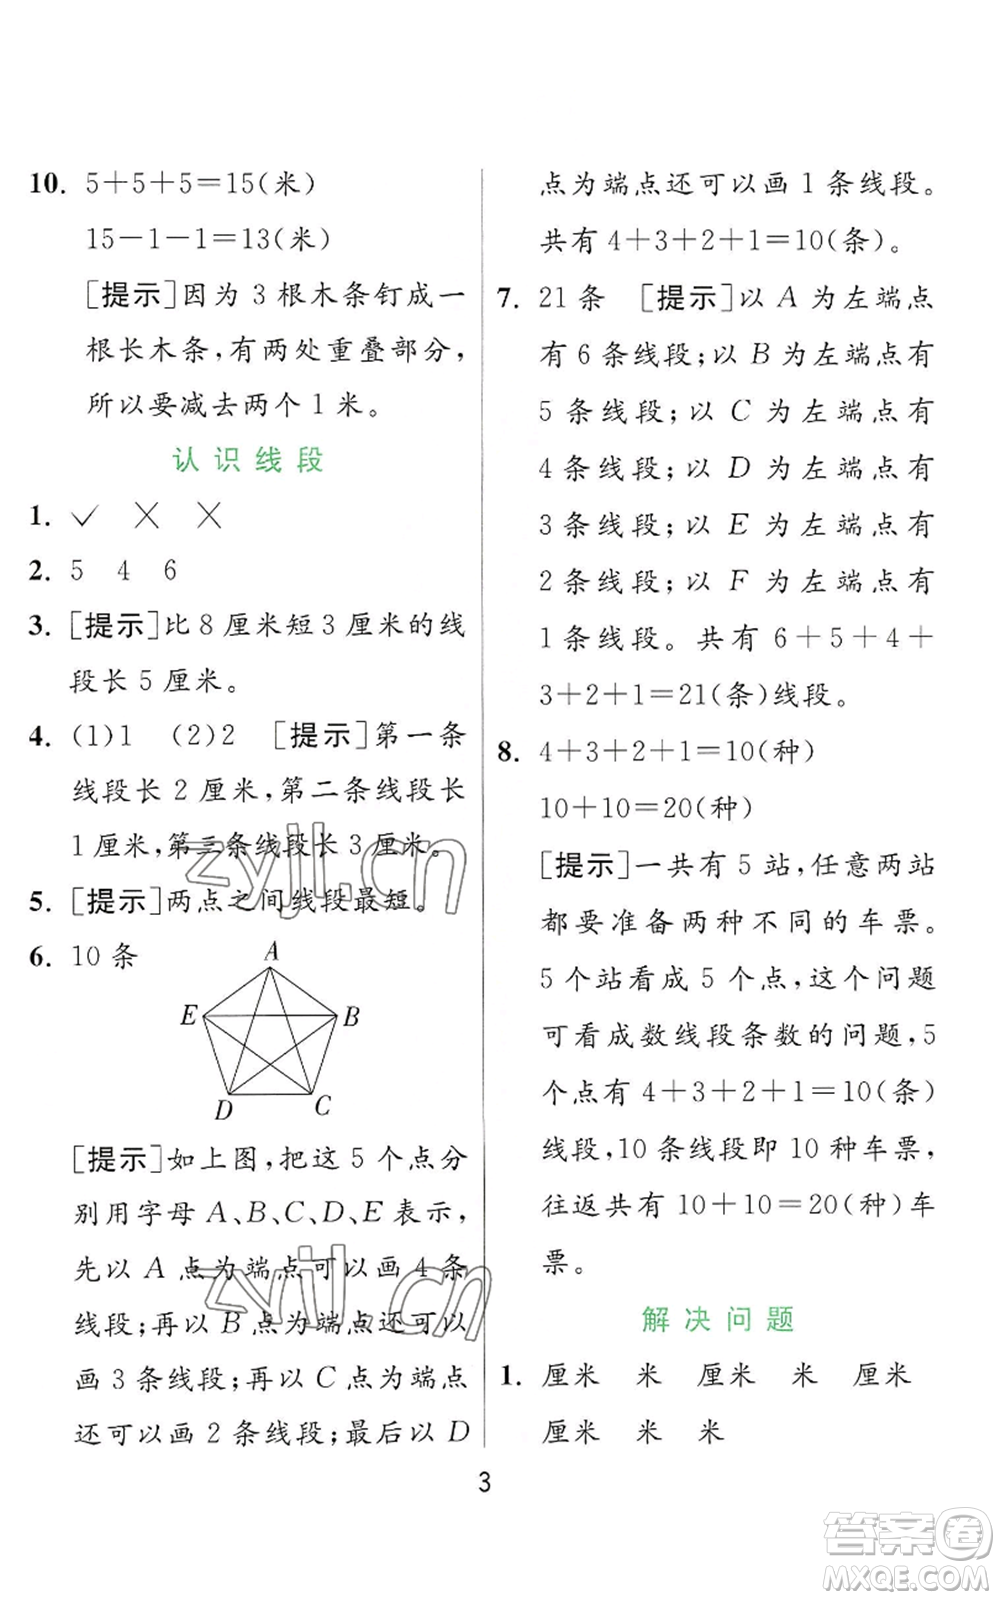 10. 5＋5＋5＝15(米)
15－1－1＝13(米)
[提示]因为 3 根木条钉成一
根长木条,有两处重叠部分,
所以要减去两个 1 米。
认识线段
1. ✓ × ×
2. 5 4 6
3. [提示]比 8 厘米短 3 厘米的线
段长 5 厘米。
4. (1)1 (2)2 [提示]第一条
线段长 2 厘米,第二条线段长
1 厘米,第三条线段长 3 厘米。
5. [提示]两点之间线段最短。
6. 10 条
A
E B
D C
[提示]如上图,把这 5 个点分
别用字母 A、B、C、D、E 表示,
先以 A 点为端点可以画 4 条
线段;再以 B 点为端点还可以
画 3 条线段;再以 C 点为端点
还可以画 2 条线段;最后以 D
点为端点还可以画 1 条线段。
共有 4＋3＋2＋1＝10(条)。
7. 21 条 [提示]以 A 为左端点
有 6 条线段;以 B 为左端点有
5 条线段;以 C 为左端点有
4 条线段;以 D 为左端点有
3 条线段;以 E 为左端点有
2 条线段;以 F 为左端点有
1 条线段。共有 6＋5＋4＋
3＋2＋1＝21(条)线段。
8. 4＋3＋2＋1＝10(种)
10＋10＝20(种)
[提示]一共有 5 站,任意两站
都要准备两种不同的车票。
5 个站看成 5 个点,这个问题
可看成数线段条数的问题,5
个点有 4＋3＋2＋1＝10(条)
线段,10 条线段即 10 种车票,
往返共有 10＋10＝20(种)车
票。
解决问题
1. 厘米 米 厘米 米 厘米
厘米 米 米
3
zyjl.cn
zyjl.cn
答案圈
MXQE.COM